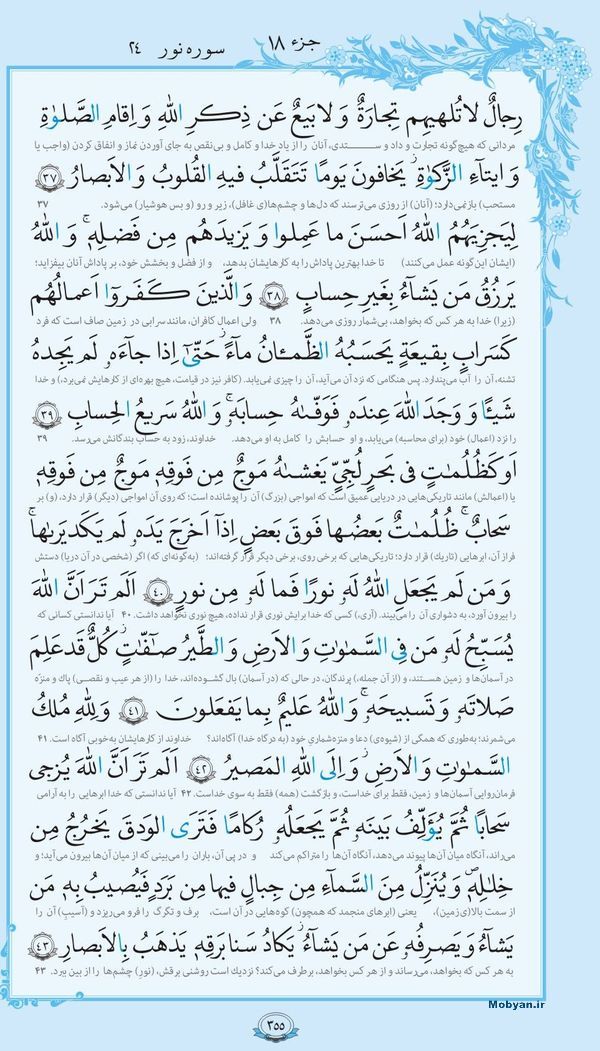 جزء ۱۸
سوره نور ۲۴
رِجالٌ لا تُلهيهِم تِجارَةٌ وَ لا بَيعٌ عَن ذِكرِ اللهِ وَ اِقامِ الصَّلوٰةِ
مردانی که هیچ‌گونه تجارت و داد و ستدی، آنان را از یاد خدا و کامل و بی‌نقص به جای آوردن نماز و انفاق کردن (واجب یا
وَ ايتاءِ الزَّكوٰةِ يَخافونَ يَومًا تَتَقَلَّبُ فيهِ القُلوبُ وَ الاَبصارُ ۳۷
مستحب) بازنمی‌دارد؛ (آنان) از روزی می‌ترسند که دل‌ها و چشم‌ها(ی غافل)، زیر و رو (و بس هوشیار) می‌شود. ۳۷
لِيَجزِيَهُمُ اللهُ اَحسَنَ ما عَمِلوا وَ يَزيدَهُم مِن فَضلِهِ وَ اللهُ
(ایشان این‌گونه عمل می‌کنند) تا خدا بهترین پاداش را به کارهایشان بدهد، و از فضل و بخشش خود، بر پاداش آنان بیفزاید؛
يَرزُقُ مَن يَشاءُ بِغَيرِ حِسابٍ ۳۸ وَ الَّذينَ كَفَروا اَعمالُهُم
(زیرا) خدا به هر کس که بخواهد، بی‌شمار روزی می‌دهد. ۳۸ ولی اعمال کافران، مانند سرابی در زمین صاف است که فرد
كَسَرابٍ بِقيعَةٍ يَحسَبُهُ الظَّمـٔانُ ماءً حَتّىٰ اِذا جاءَهُ لَم يَجِدهُ
تشنه، آن را آب می‌پندارد. پس هنگامی که نزد آن می‌آید، آن را چیزی نمی‌یابد. (کافر نیز در قیامت، هیچ بهره‌ای از کارهایش نمی‌برد)، و خدا
شَيئًا وَ وَجَدَ اللهَ عِندَهُ فَوَفّىٰهُ حِسابَهُ وَ اللهُ سَريعُ الحِسابِ ۳۹
را نزد (اعمال) خود (برای محاسبه) می‌یابد، و او حسابش را کامل به او می‌دهد. خداوند، زود به حساب بندگانش می‌رسد. ۳۹
اَو كَظُلُماتٍ فى بَحرٍ لُجِّىٍّ يَغشىٰهُ مَوجٌ مِن فَوقِهِ مَوجٌ مِن فَوقِهِ
یا (اعمالش) مانند تاریکی‌هایی در دریایی عمیق است که امواجی (بزرگ) آن را پوشانده است؛ که روی آن امواجی (دیگر) قرار دارد، (و) بر
سَحابٌ ظُلُماتٌ بَعضُها فَوقَ بَعضٍ اِذا اَخرَجَ يَدَهُ لَم يَكَد يَرىٰها
فراز آن، ابرهایی (تاریک) قرار دارد؛ تاریکی‌هایی که برخی روی، برخی دیگر قرار گرفته‌اند؛ (به‌گونه‌ای که) اگر (شخصی در آن دریا) دستش
وَ مَن لَم يَجعَلِ اللهُ لَهُ نورًا فَما لَهُ مِن نورٍ ۴۰ اَلَم تَرَ اَنَّ اللهَ
را بیرون آورد، به دشواری آن را می‌بیند. (آری،) کسی که خدا برایش نوری قرار نداده، هیچ نوری نخواهد داشت. ۴۰ آیا ندانستی کسانی که
يُسَبِّحُ لَهُ مَن فِى السَّماوٰتِ وَ الاَرضِ وَ الطَّيرُ صافّاتٍ كُلٌّ قَد عَلِمَ
در آسمان‌ها و زمین هستند، و (از آن جمله،) پرندگان، در حالی که (در آسمان) بال گشوده‌اند، خدا را (از هر عیب و نقصی) پاک و منزّه
صَلاتَهُ وَ تَسبيحَهُ وَ اللهُ عَليمٌ بِما يَفعَلونَ ۴۱ وَ لِلّٰهِ مُلكُ
می‌شمرند؛ به‌طوری که همگی از (شیوه‌ی) دعا و منزّه‌شماری خود (به درگاه خدا) آگاه‌اند؟ خداوند از کارهایشان به‌خوبی آگاه است. ۴۱
السَّماوٰتِ وَ الاَرضِ وَ اِلَى اللهِ المَصيرُ ۴۲ اَلَم تَرَ اَنَّ اللهَ يُزجى
فرمان‌روایی آسمان‌ها و زمین، فقط برای خداست، و بازگشت (همه) فقط به سوی خداست. ۴۲ آیا ندانستی که خدا ابرهایی را به آرامی
سَحابًا ثُمَّ يُؤَلِّفُ بَينَهُ ثُمَّ يَجعَلُهُ رُكامًا فَتَرَى الوَدقَ يَخرُجُ مِن
می‌راند، آنگاه میان آن‌ها پیوند می‌دهد، آنگاه آن‌ها را متراکم می‌کند و در پی آن، باران را می‌بینی که از میان آن‌ها بیرون می‌آید؛ و
خِلالِهِ وَ يُنَزِّلُ مِنَ السَّماءِ مِن جِبالٍ فيها مِن بَرَدٍ فَيُصيبُ بِهِ مَن
از سمت بالا(ی زمین)، یعنی (ابرهای منجمد که همچون) کوه‌هایی در آن است، برف و تگرگ را فرو می‌ریزد و (آسیبِ) آن را
يَشاءُ وَ يَصرِفُهُ عَن مَن يَشاءُ يَكادُ سَنا بَرقِهِ يَذهَبُ بِالاَبصارِ ۴۳
به هر کس که بخواهد، می‌رساند و از هر کس بخواهد، برطرف می‌کند؟ نزدیک است روشنی برقش، (نورِ) چشم‌ها را از بین ببرد. ۴۳
Mobyan.ir
۳۵۵